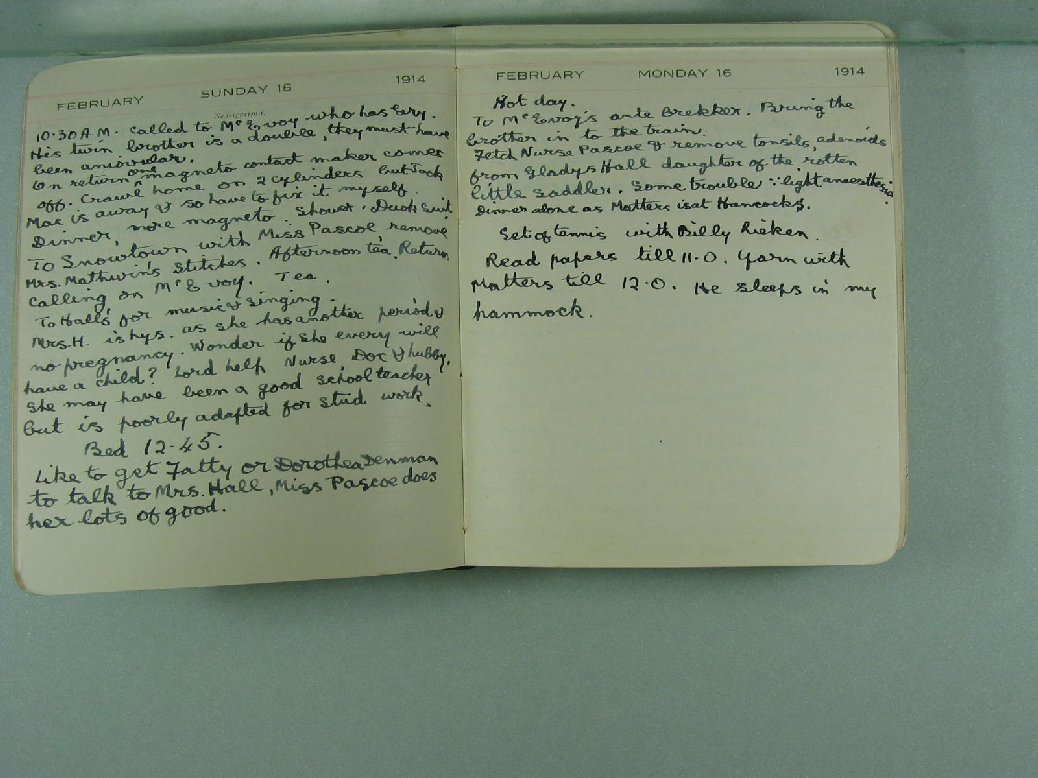 FEBRUARY SUNDAY 15 1914
Sexagesima
10.30 A.M. Called to McEvoy who has Ery.
His twin brother is a double, they must have
been uniovular.
On return one magneto contact maker comes
off. Crawl home on 2 cylinders but Jack
Mac is away & so have to fix it myself.
Dinner, more magneto. Shower. Duck Suit
To Snowtown with Miss Pascoe remove
Mrs. Mathwin's stitches. Afternoon tea. Return
calling on McEvoy. Tea.
To Halls' for music & singing.
Mrs. H. is hys. as she has another period, &
no pregnancy. Wonder if she every will
have a child? Lord help Nurse, Doc & hubby.
She may have been a good school teacher
but is poorly adapted for stud work.
Bed 12-45.
Like to get Fatty or Dorothea Denman
to talk to Mrs. Hall, Miss Pascoe does
her lots of good.
FEBRUARY MONDAY 16 1914
Hot day.
To McEvoy's ante brekker. Bring the
brother in to the train.
Fetch Nurse Pascoe & remove tonsils, adenoids
from Gladys Hall daughter of the rotten
little saddler. Some trouble ∵ light anaesthesia.
Dinner alone as Matters is at Hancocks.
Set of tennis with Billy Rieken.
Read papers till 11-0. Yarn with
Matters till 12-0. He sleeps in my
hammock.